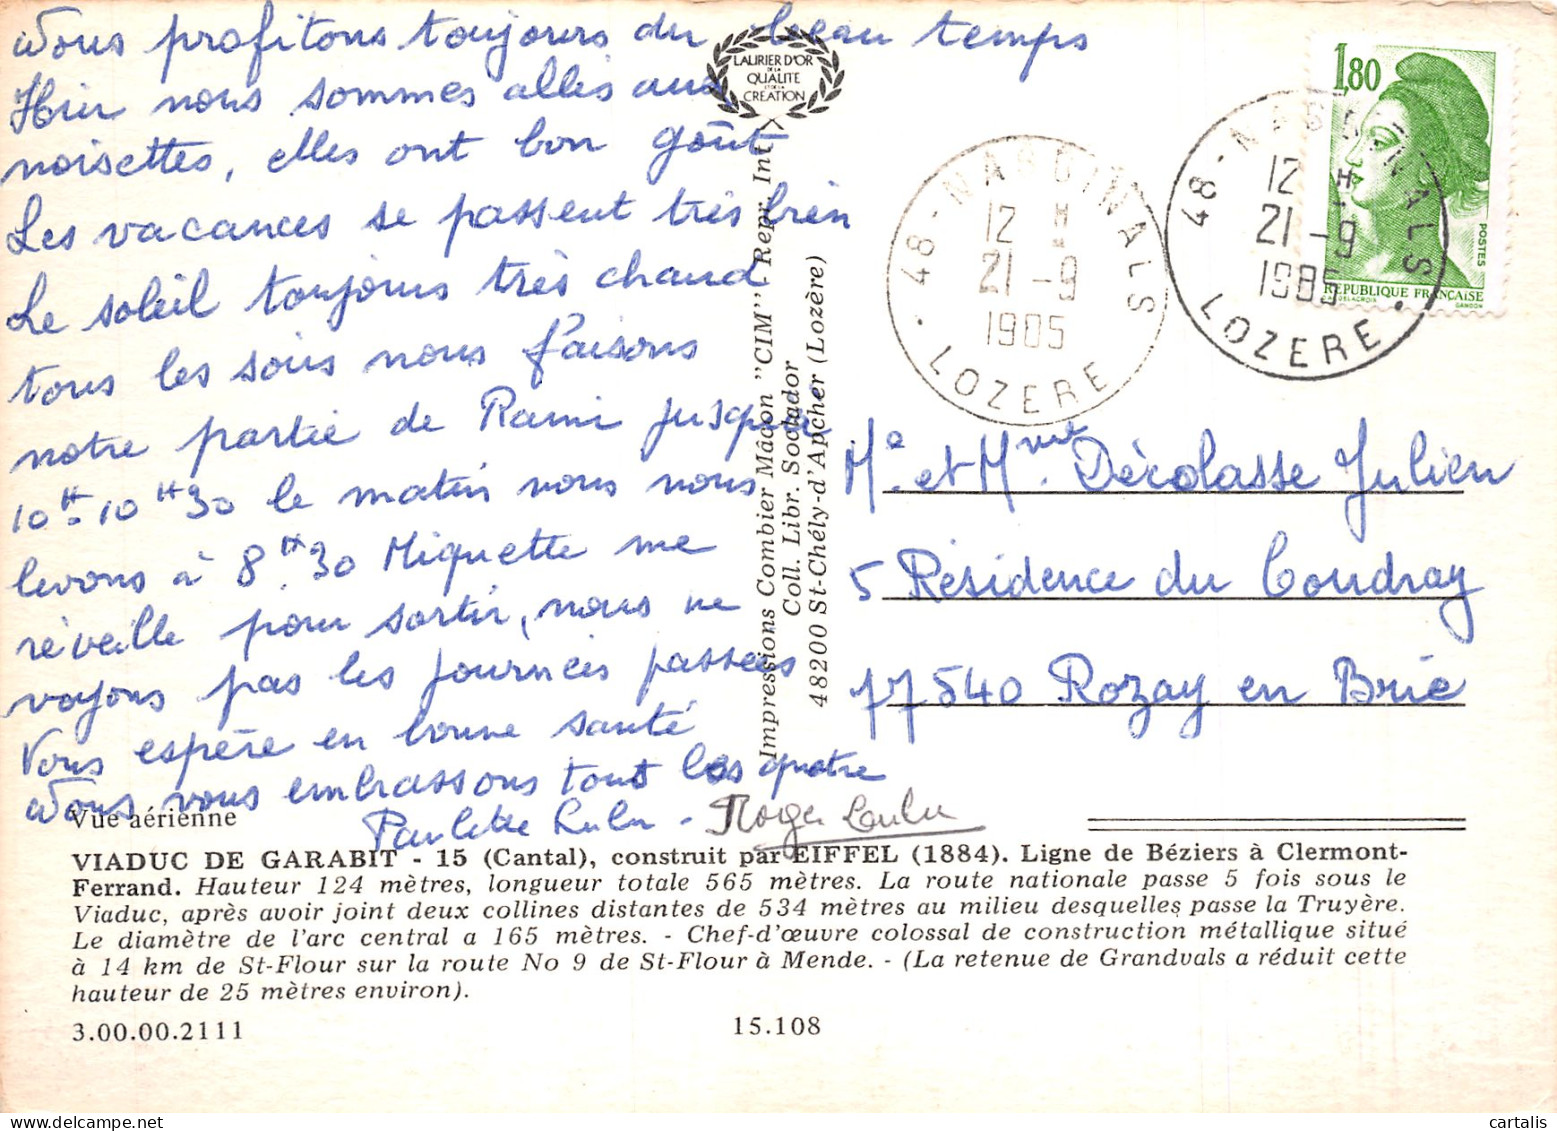 Nous profitons toujours du beau temps
Hier nous sommes allés aux
noisettes, elles ont bon goût
Les vacances se passent très bien
Le soleil toujours très chaud
tous les soirs nous faisons
notre partie de Rami jusqu'à
10H-10H30 le matin nous nous
levons à 8H.30 Miquette me
réveille pour sortir, nous ne
voyons pas les journées passées
Vous espère en bonne santé
Nous vous embrassons tous les quatre
Paulette Lulu - Roger Loulou
LAURIER D'OR
DE LA
QUALITE
ET DE LA
CREATION
Impressions Combier Mâcon "CIM" - Repr. Int.
Coll. Libr. Soulador
48200 St-Chély-d'Apcher (Lozère)
48 - NASBINALS
12 H
21 -9
1985
LOZERE
48 - NASBINALS
12 H
21 -9
1985
LOZERE
1,80
POSTES
REPUBLIQUE FRANÇAISE
DELACROIX GANDON
Mr. et Mme Décolasse Julien
5 Résidence du Coudray
77540 Rozay en Brie
Vue aérienne
VIADUC DE GARABIT - 15 (Cantal), construit par EIFFEL (1884). Ligne de Béziers à Clermont-
Ferrand. Hauteur 124 mètres, longueur totale 565 mètres. La route nationale passe 5 fois sous le
Viaduc, après avoir joint deux collines distantes de 534 mètres au milieu desquelles passe la Truyère.
Le diamètre de l'arc central a 165 mètres. - Chef-d'œuvre colossal de construction métallique situé
à 14 km de St-Flour sur la route No 9 de St-Flour à Mende. - (La retenue de Grandvals a réduit cette
hauteur de 25 mètres environ).
3.00.00.2111
15.108
cartalis